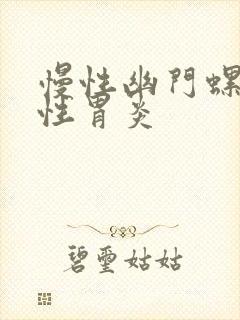 慢性幽門螺
性胃炎
碧璽姑姑